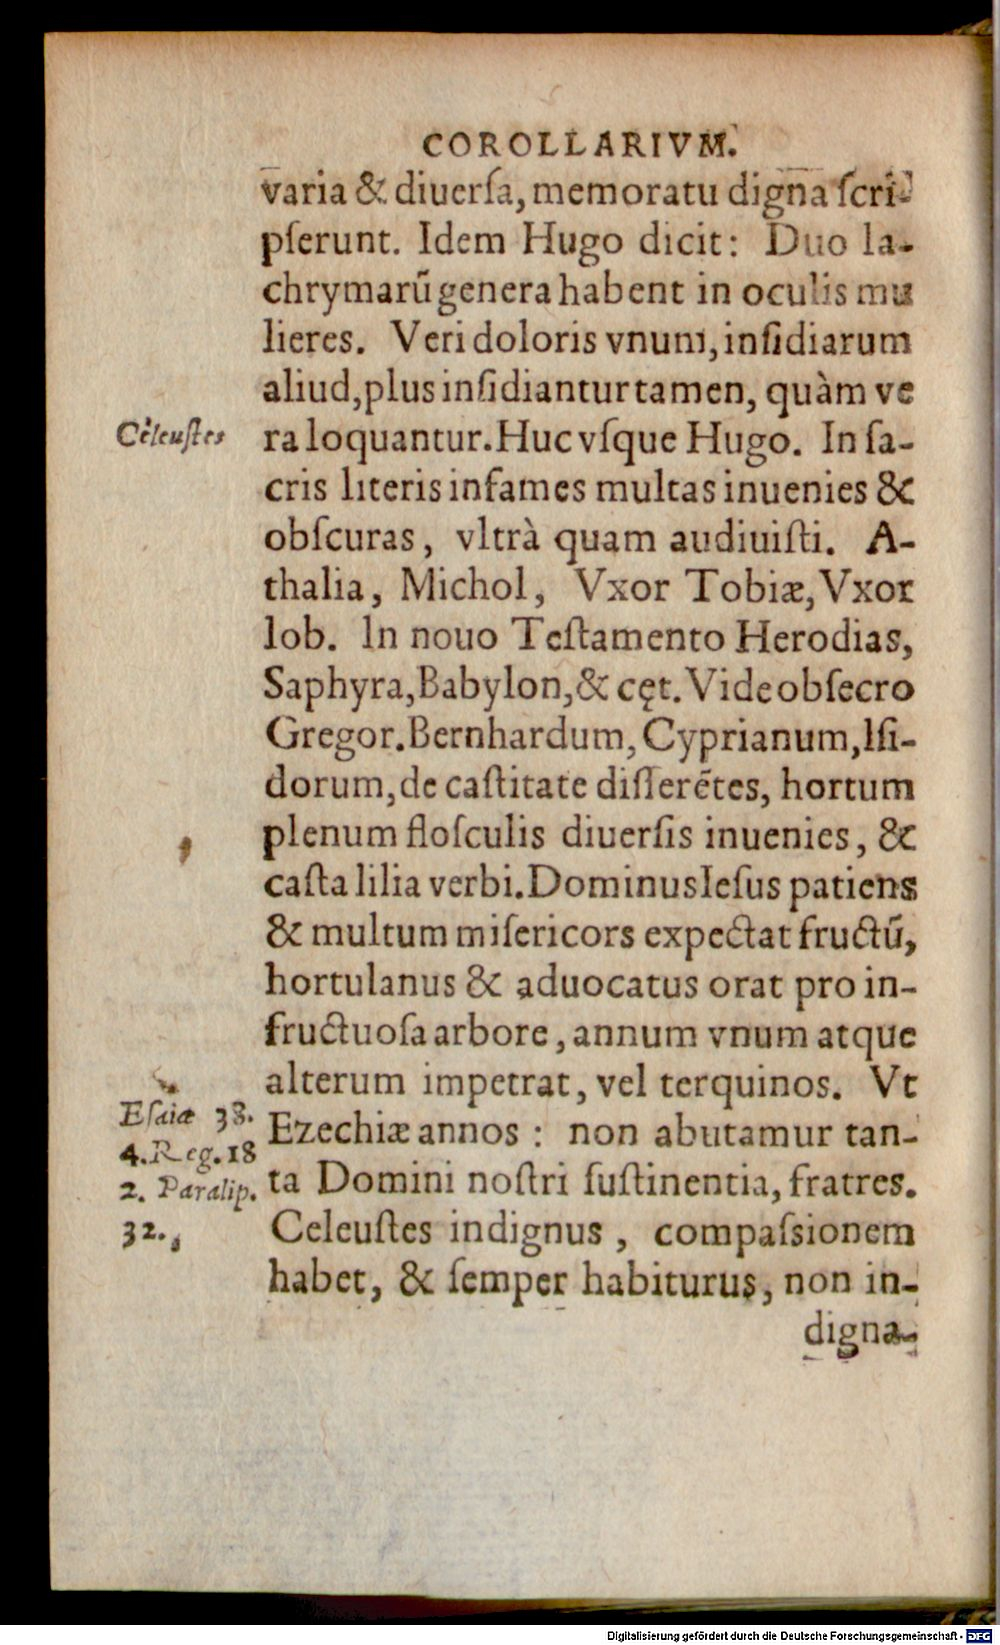 COROLLARIVM.
varia & diuerſa, memoratu digna ſcri-
pſerunt. Idem Hugo dicit: Duo la-
chrymarũ genera habent in oculis mu
lieres. Veri doloris vnum, inſidiarum
aliud, plus inſidiantur tamen, quàm ve
Celeuſtes
ra loquantur. Huc vſque Hugo. In ſa-
cris literis infames multas inuenies &
obſcuras, vltrà quam audiuiſti. A-
thalia, Michol, Vxor Tobiæ, Vxor
Iob. In nouo Teſtamento Herodias,
Saphyra, Babylon, & cęt. Vide obſecro
Gregor. Bernhardum, Cyprianum, Iſi-
dorum, de caſtitate diſſerẽtes, hortum
plenum floſculis diuerſis inuenies, &
caſta lilia verbi. Dominus Ieſus patiens
& multum miſericors expectat fructũ,
hortulanus & aduocatus orat pro in-
fructuoſa arbore, annum vnum atque
alterum impetrat, vel terquinos. Vt
Eſaiæ 38.
4. Reg. 18
2. Paralip.
32.
Ezechiæ annos: non abutamur tan-
ta Domini noſtri ſuſtinentia, fratres.
Celeuſtes indignus, compaſsionem
habet, & ſemper habiturus, non in-
digna-
Digitalisierung gefördert durch die Deutsche Forschungsgemeinschaft - DFG